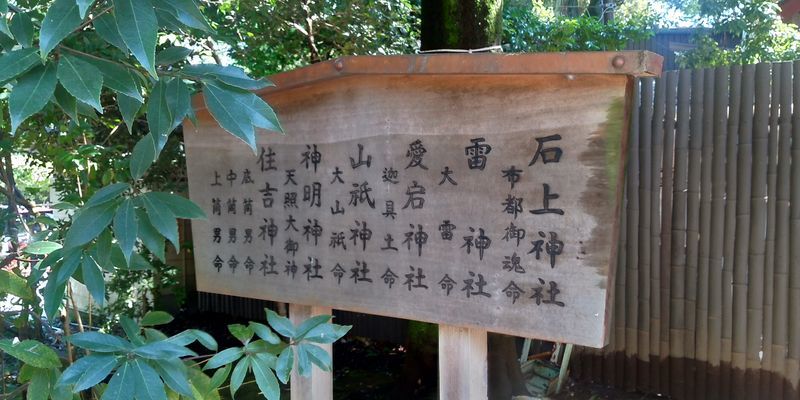 石上神社
布都御魂命
雷神社
大雷命
愛宕神社
迦具土命
山祇神社
大山祇命
神明神社
天照大御神
住吉神社
底筒男命
中筒男命
上筒男命